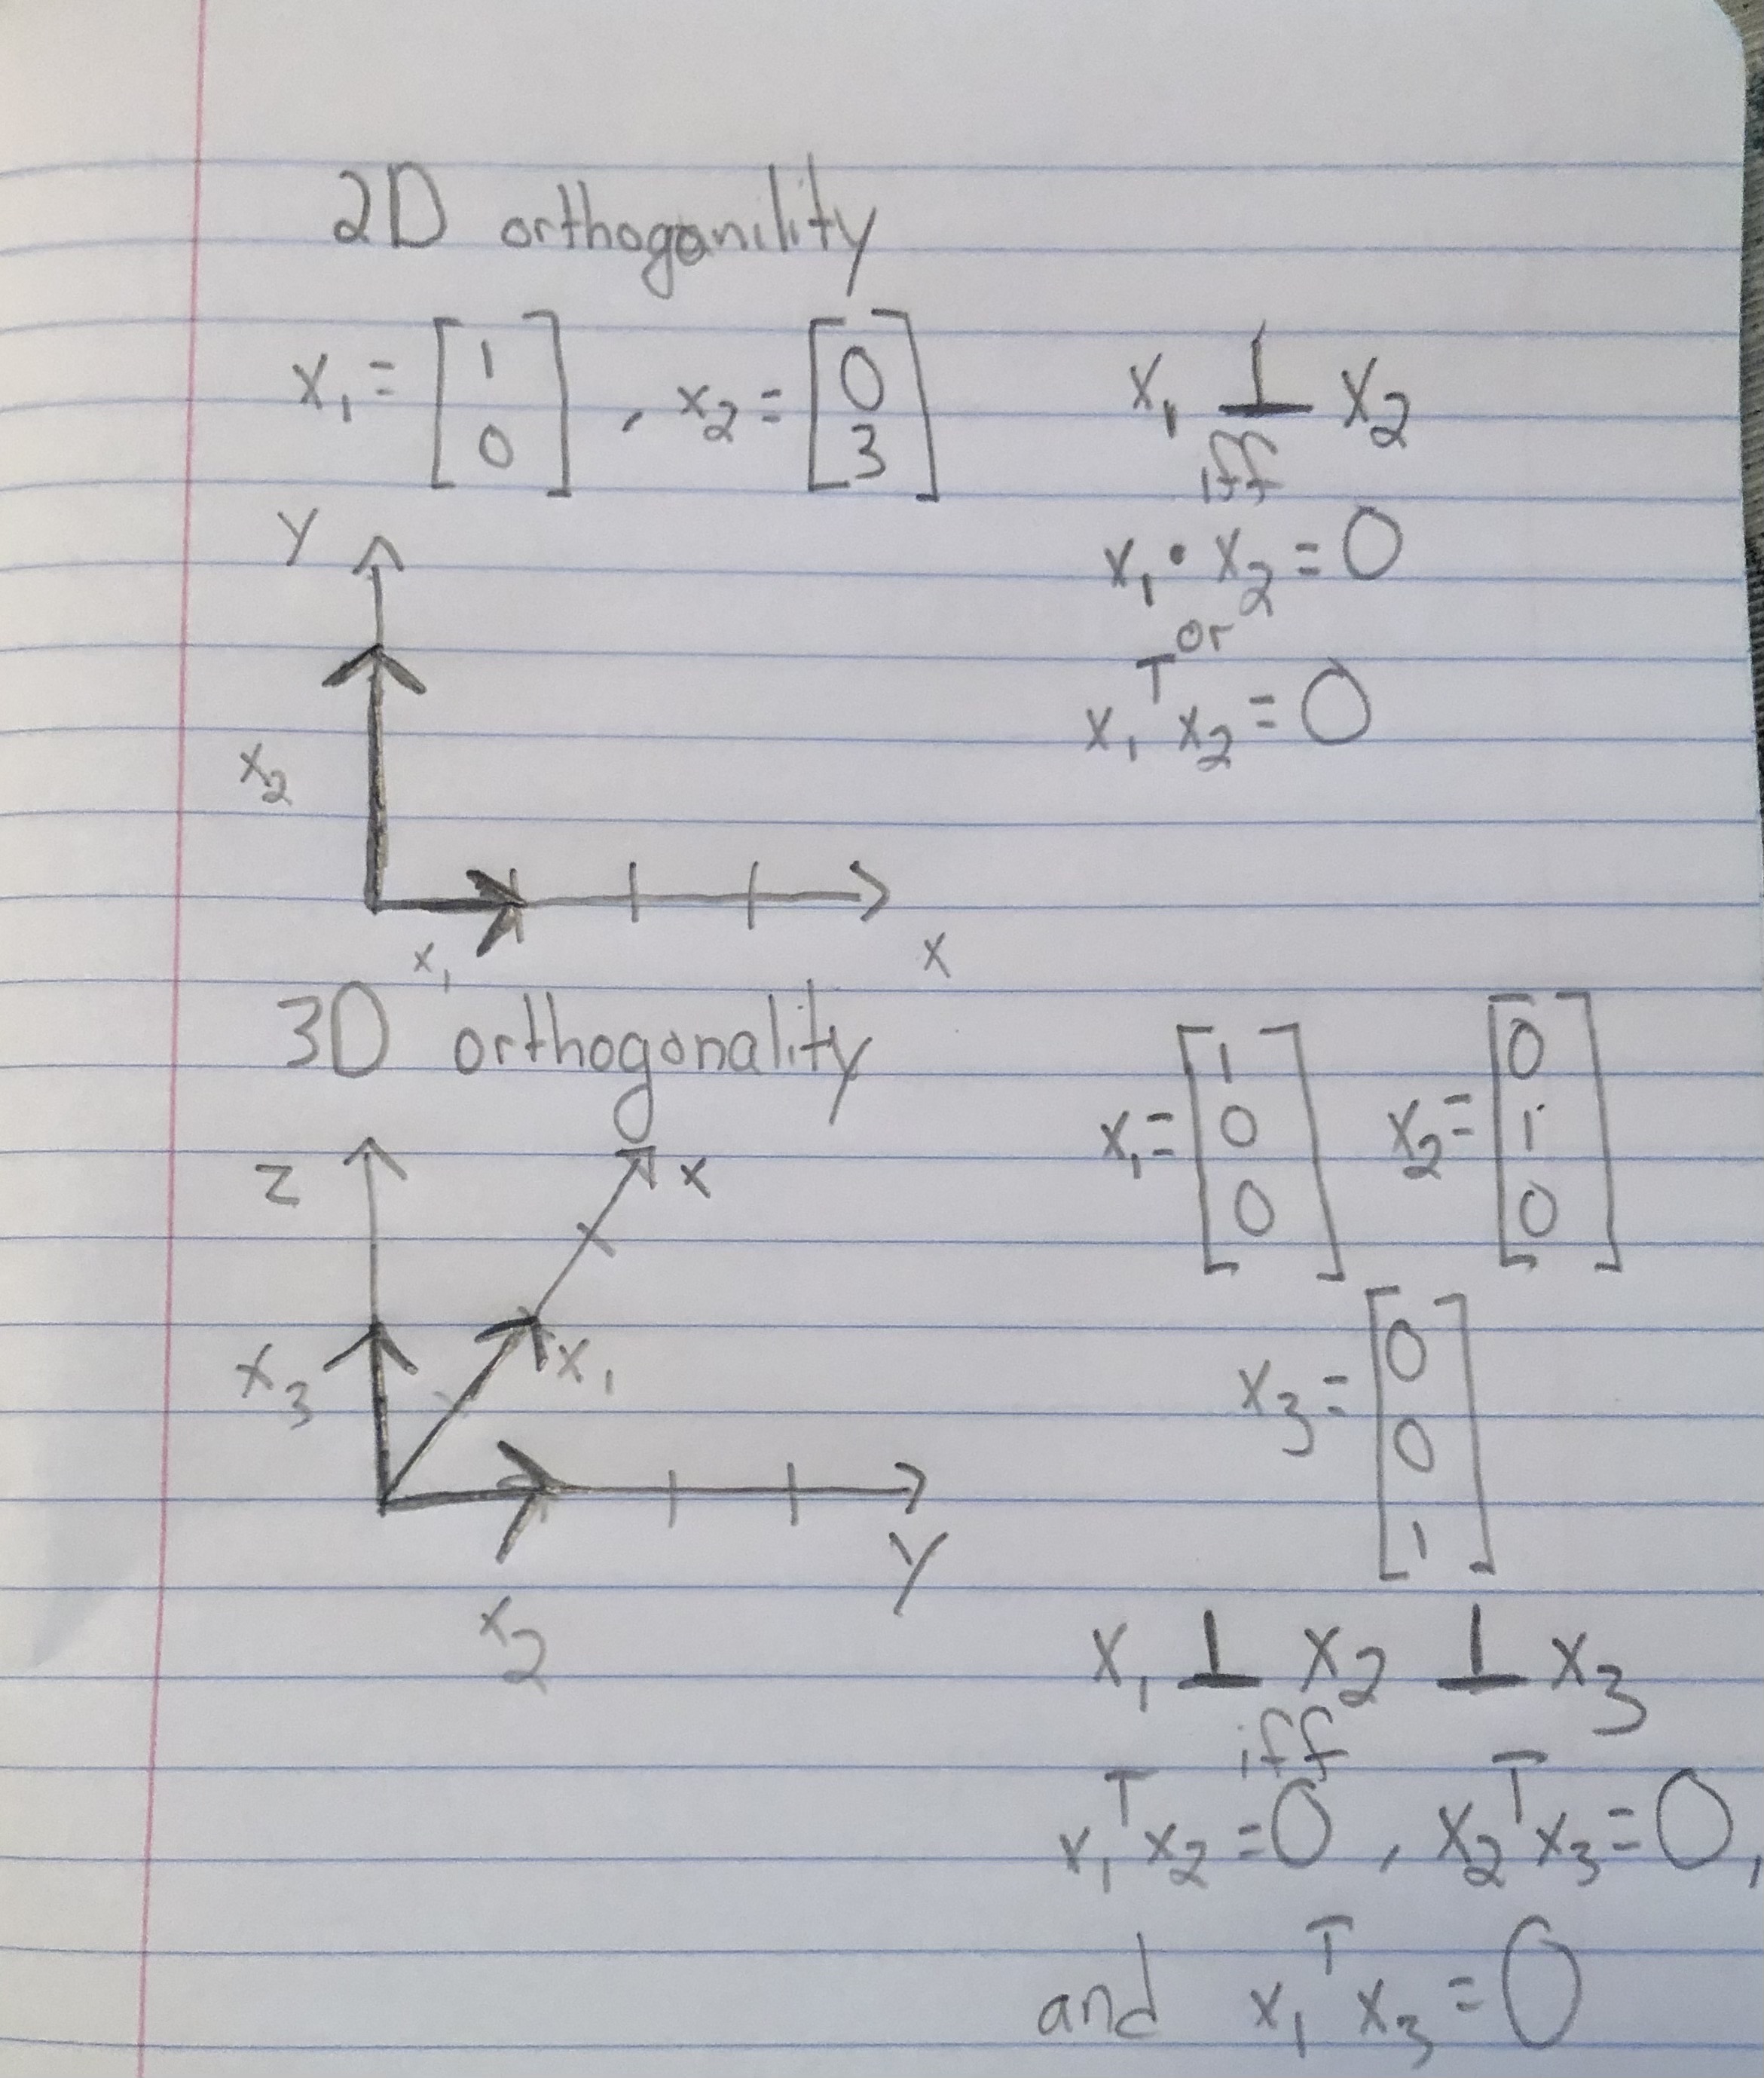 2D orthogonility
x₁ = [1 0] , x₂ = [0 3]
x₁ ⊥ x₂
iff
x₁ • x₂ = 0
or
x₁ᵀ x₂ = 0
Y
x₂
x₁
x
3D orthogonality
x₁ = [1 0 0] x₂ = [0 1 0]
x₃ = [0 0 1]
z
x
x₃
x₁
Y
x₂
x₁ ⊥ x₂ ⊥ x₃
iff
x₁ᵀ x₂ = 0 , x₂ᵀ x₃ = 0,
and x₁ᵀ x₃ = 0